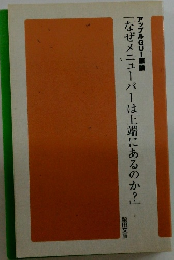 アップルGUI解読
「なぜメニューバーは上端にあるのか?」